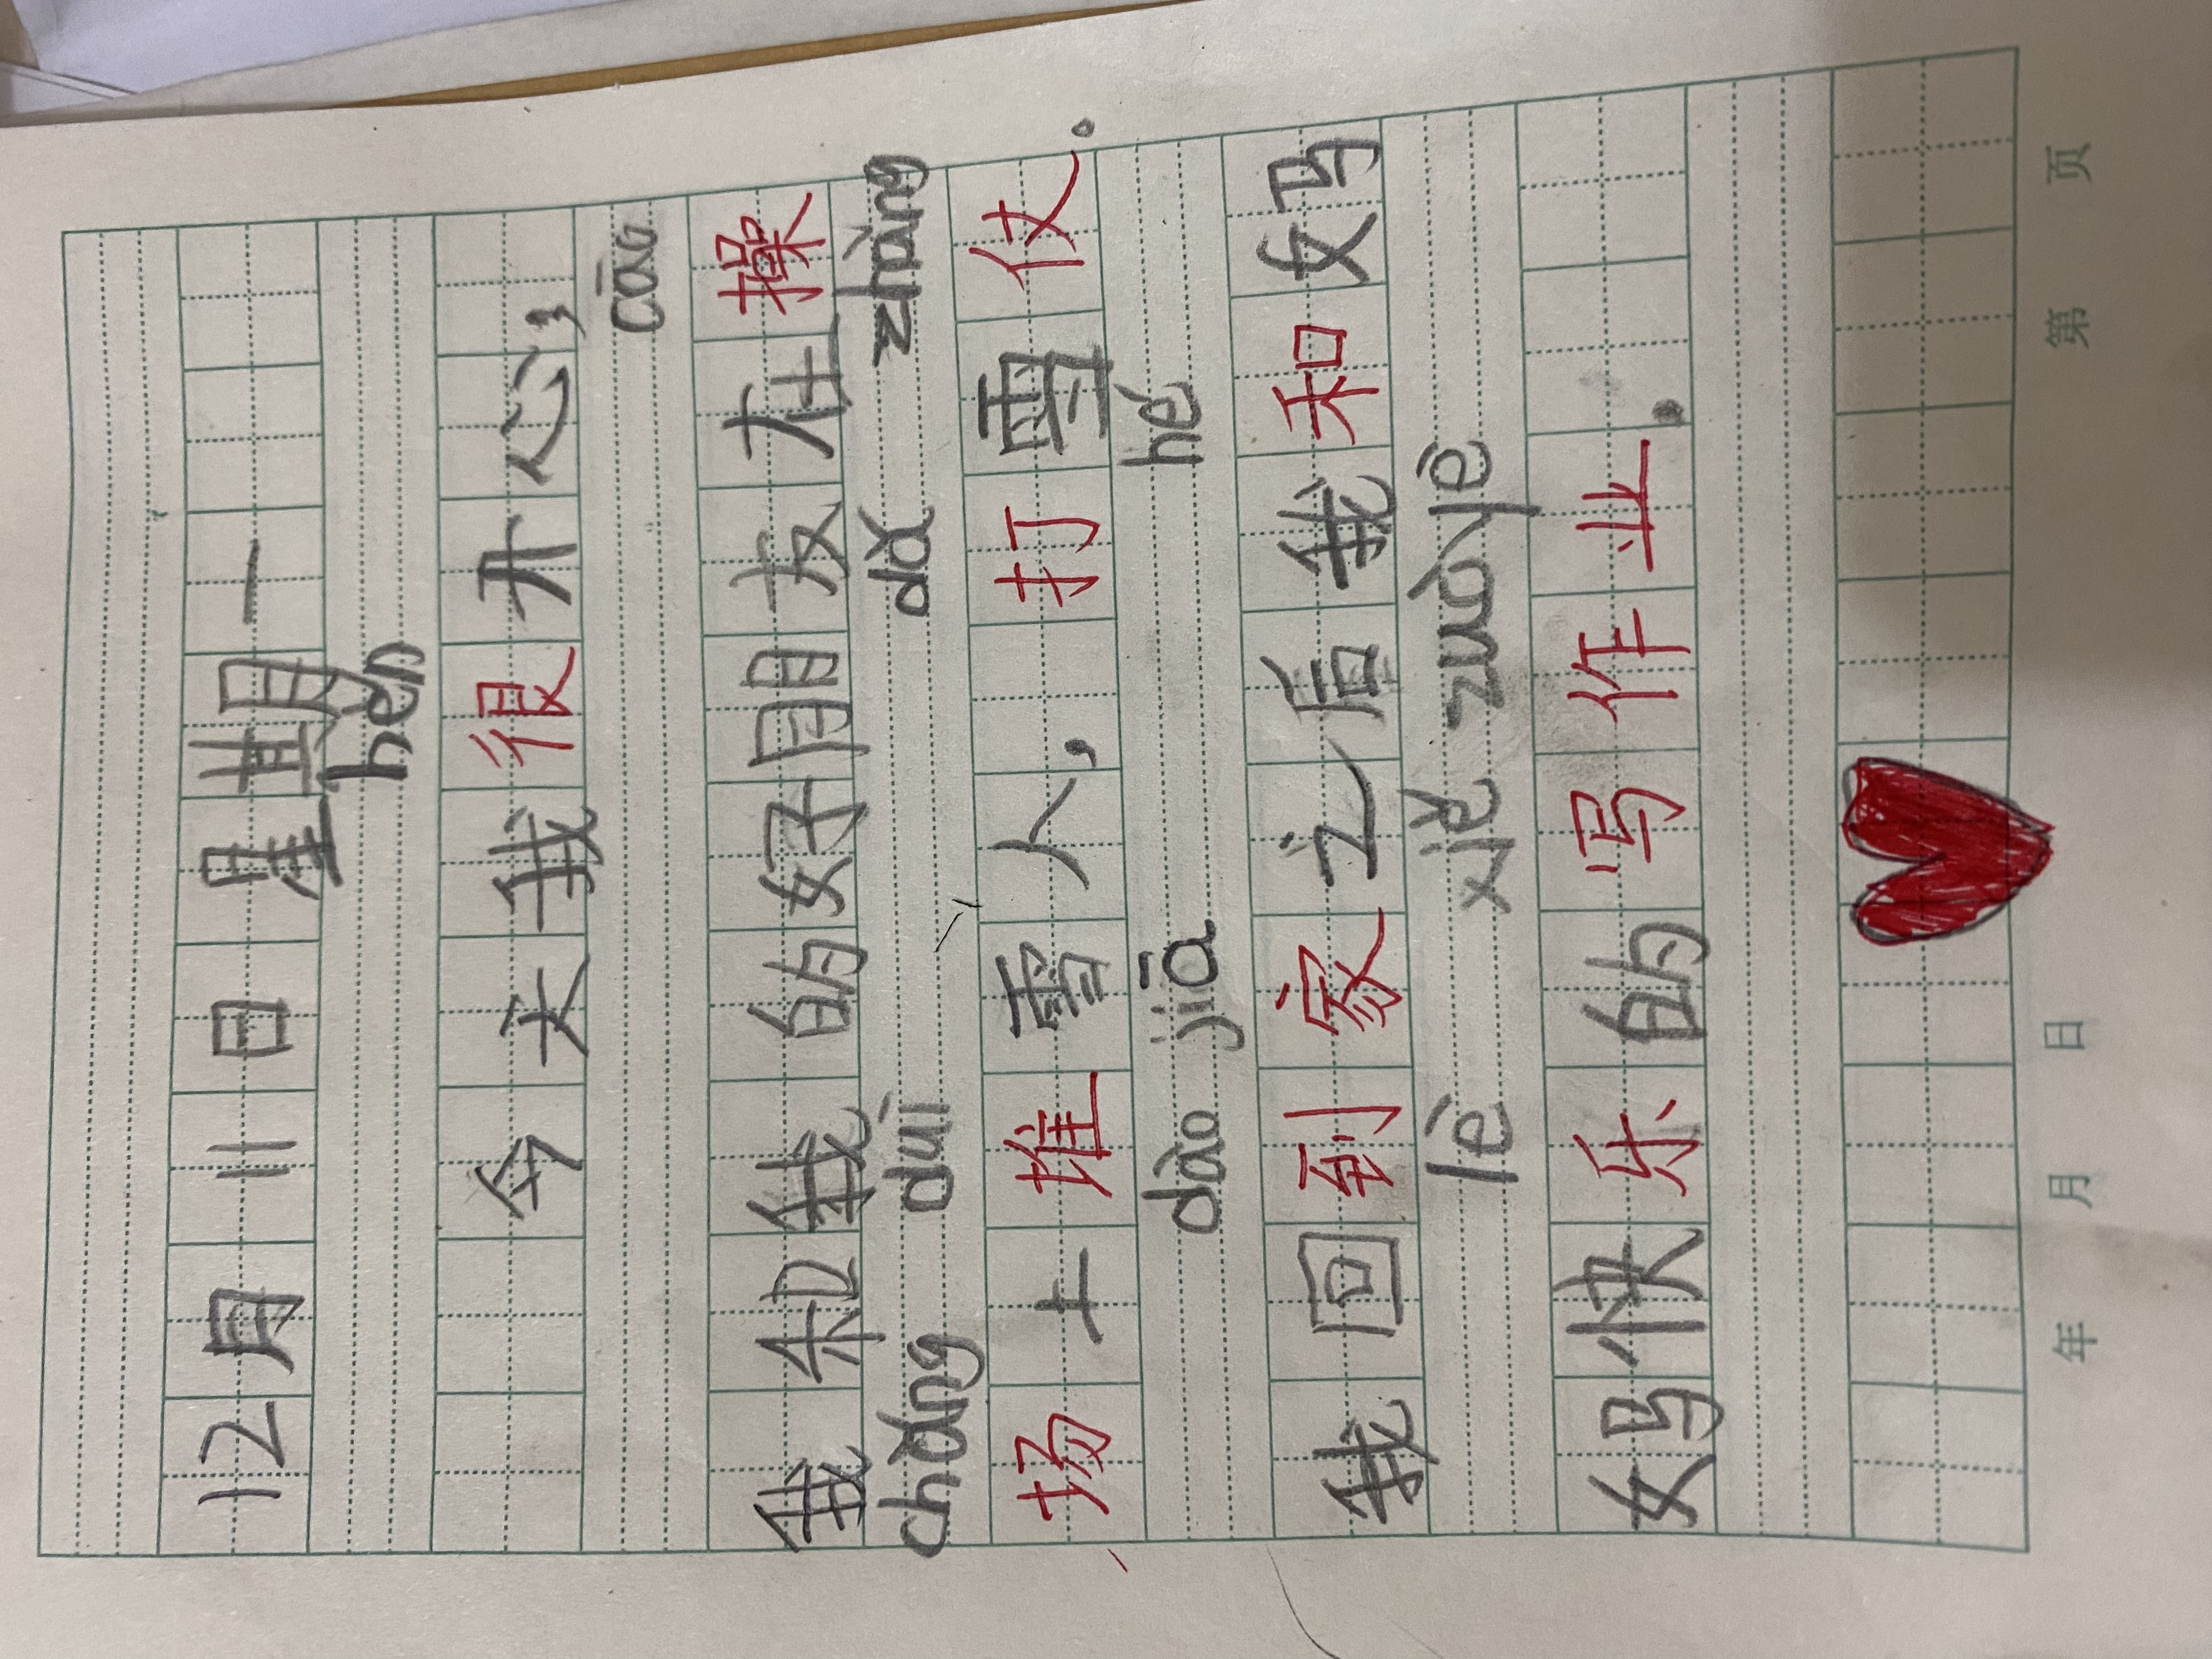 12月11日 星期一
hěn
今天我很开心,
cāo
我和我的好朋友在操
chǎng duī dǎ zhàng
场上堆雪人, 打雪仗.
dào jiā hé
我回到家之后我和妈
lè xiě zuòyè
妈快乐的写作业.
年 月 日 第 页